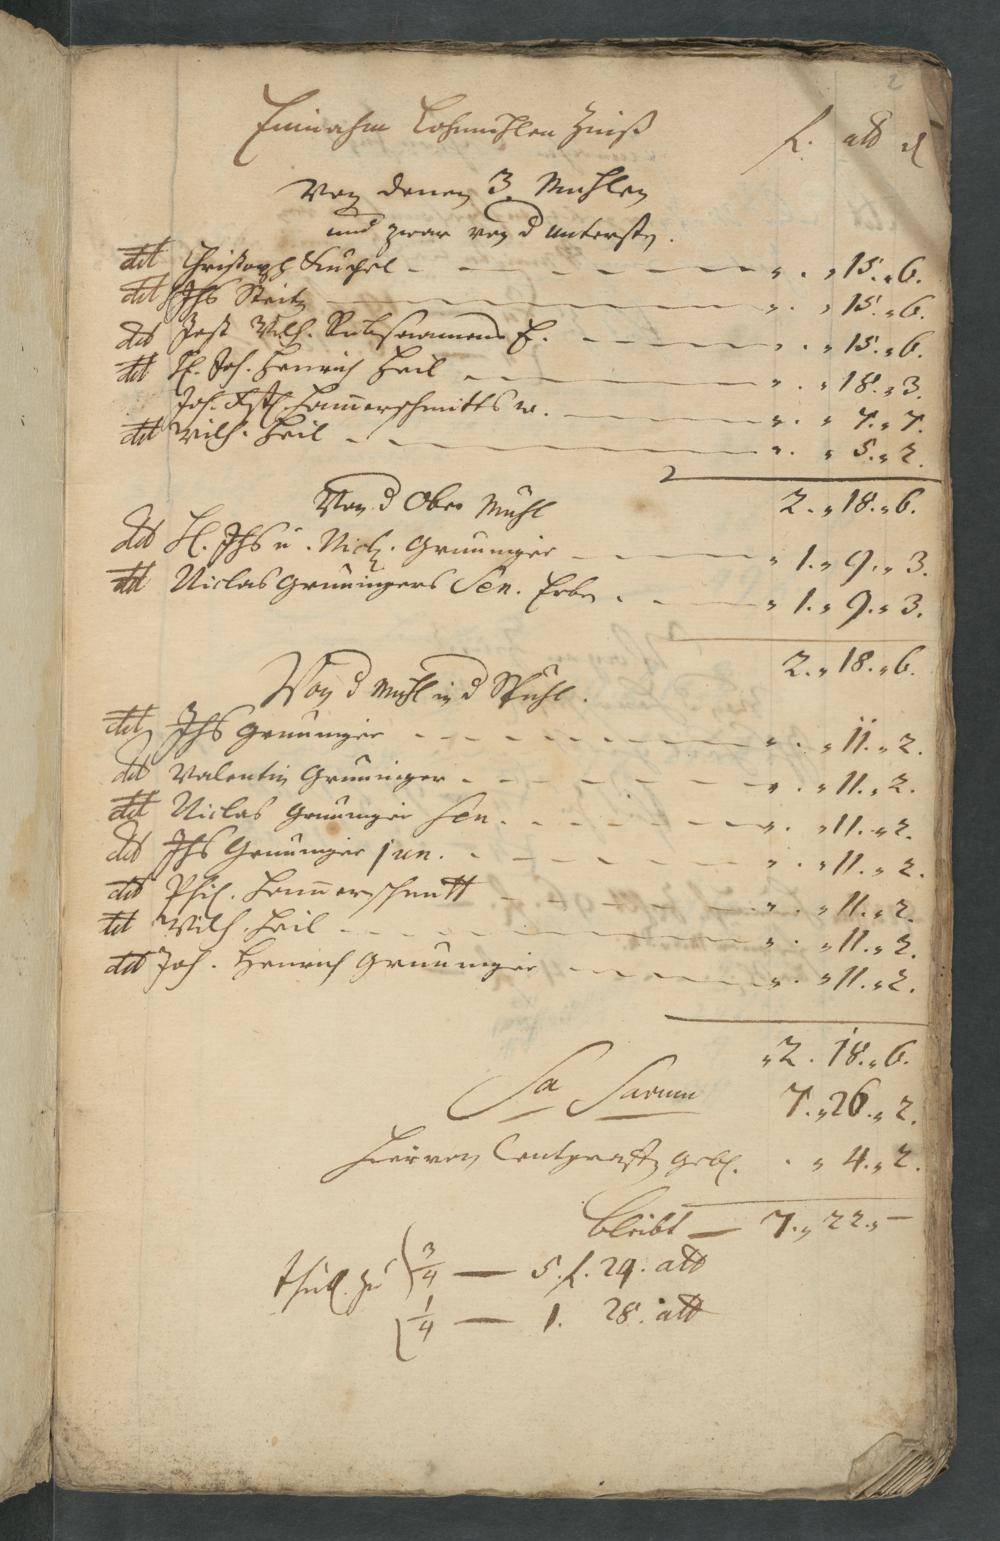 2
Einnahm Lohmühlen Zinß
f. alb d
Von denen 3 Mühlen
und zwar von d untersten.
dt Christoph Küchel - - - " . " 15. " 6.
dt Jhs Streitz - - - " . " 15. " 6.
dt Jost Wilh. Rübsaamens E. - - - " . " 15. " 6.
dt H. Joh. Henrich Heil - - - " . " 18. " 3.
Joh. Hammerschmitts w. - - - " . " 7. " 7.
dt Wilh. Heil - - - " . " 5. " 2.
2. " 18. " 6.
Von d Ober Mühl
dt H. Jhs u. Nicl. Grüninger - - - " 1. " 9. " 3.
dt Niclas Grüningers Sen. Erben - - - " 1. " 9. " 3.
2. " 18. " 6.
Von d Mühl in d Brühl.
dt Jhs Grüninger - - - " . " 11. " 2.
dt Valentin Grüninger - - - " . " 11. " 2.
dt Niclas Grüninger Sen. - - - " . " 11. " 2.
dt Jhs Grüninger jun. - - - " . " 11. " 2.
dt Phil. Hammerschmitt - - - " . " 11. " 2.
dt Wilh. Heil - - - " . " 11. " 2.
dt Joh. Henrich Grüninger - - - " . " 11. " 2.
" 2. 18. " 6.
Sa Sarum 7. " 26. " 2.
Hiervon Centgraffen geb. . " 4. " 2.
bleibt — 7. " 22. " —
thut zu 3/4 — 5. f. 24. alb
1/4 — 1. 28. alb